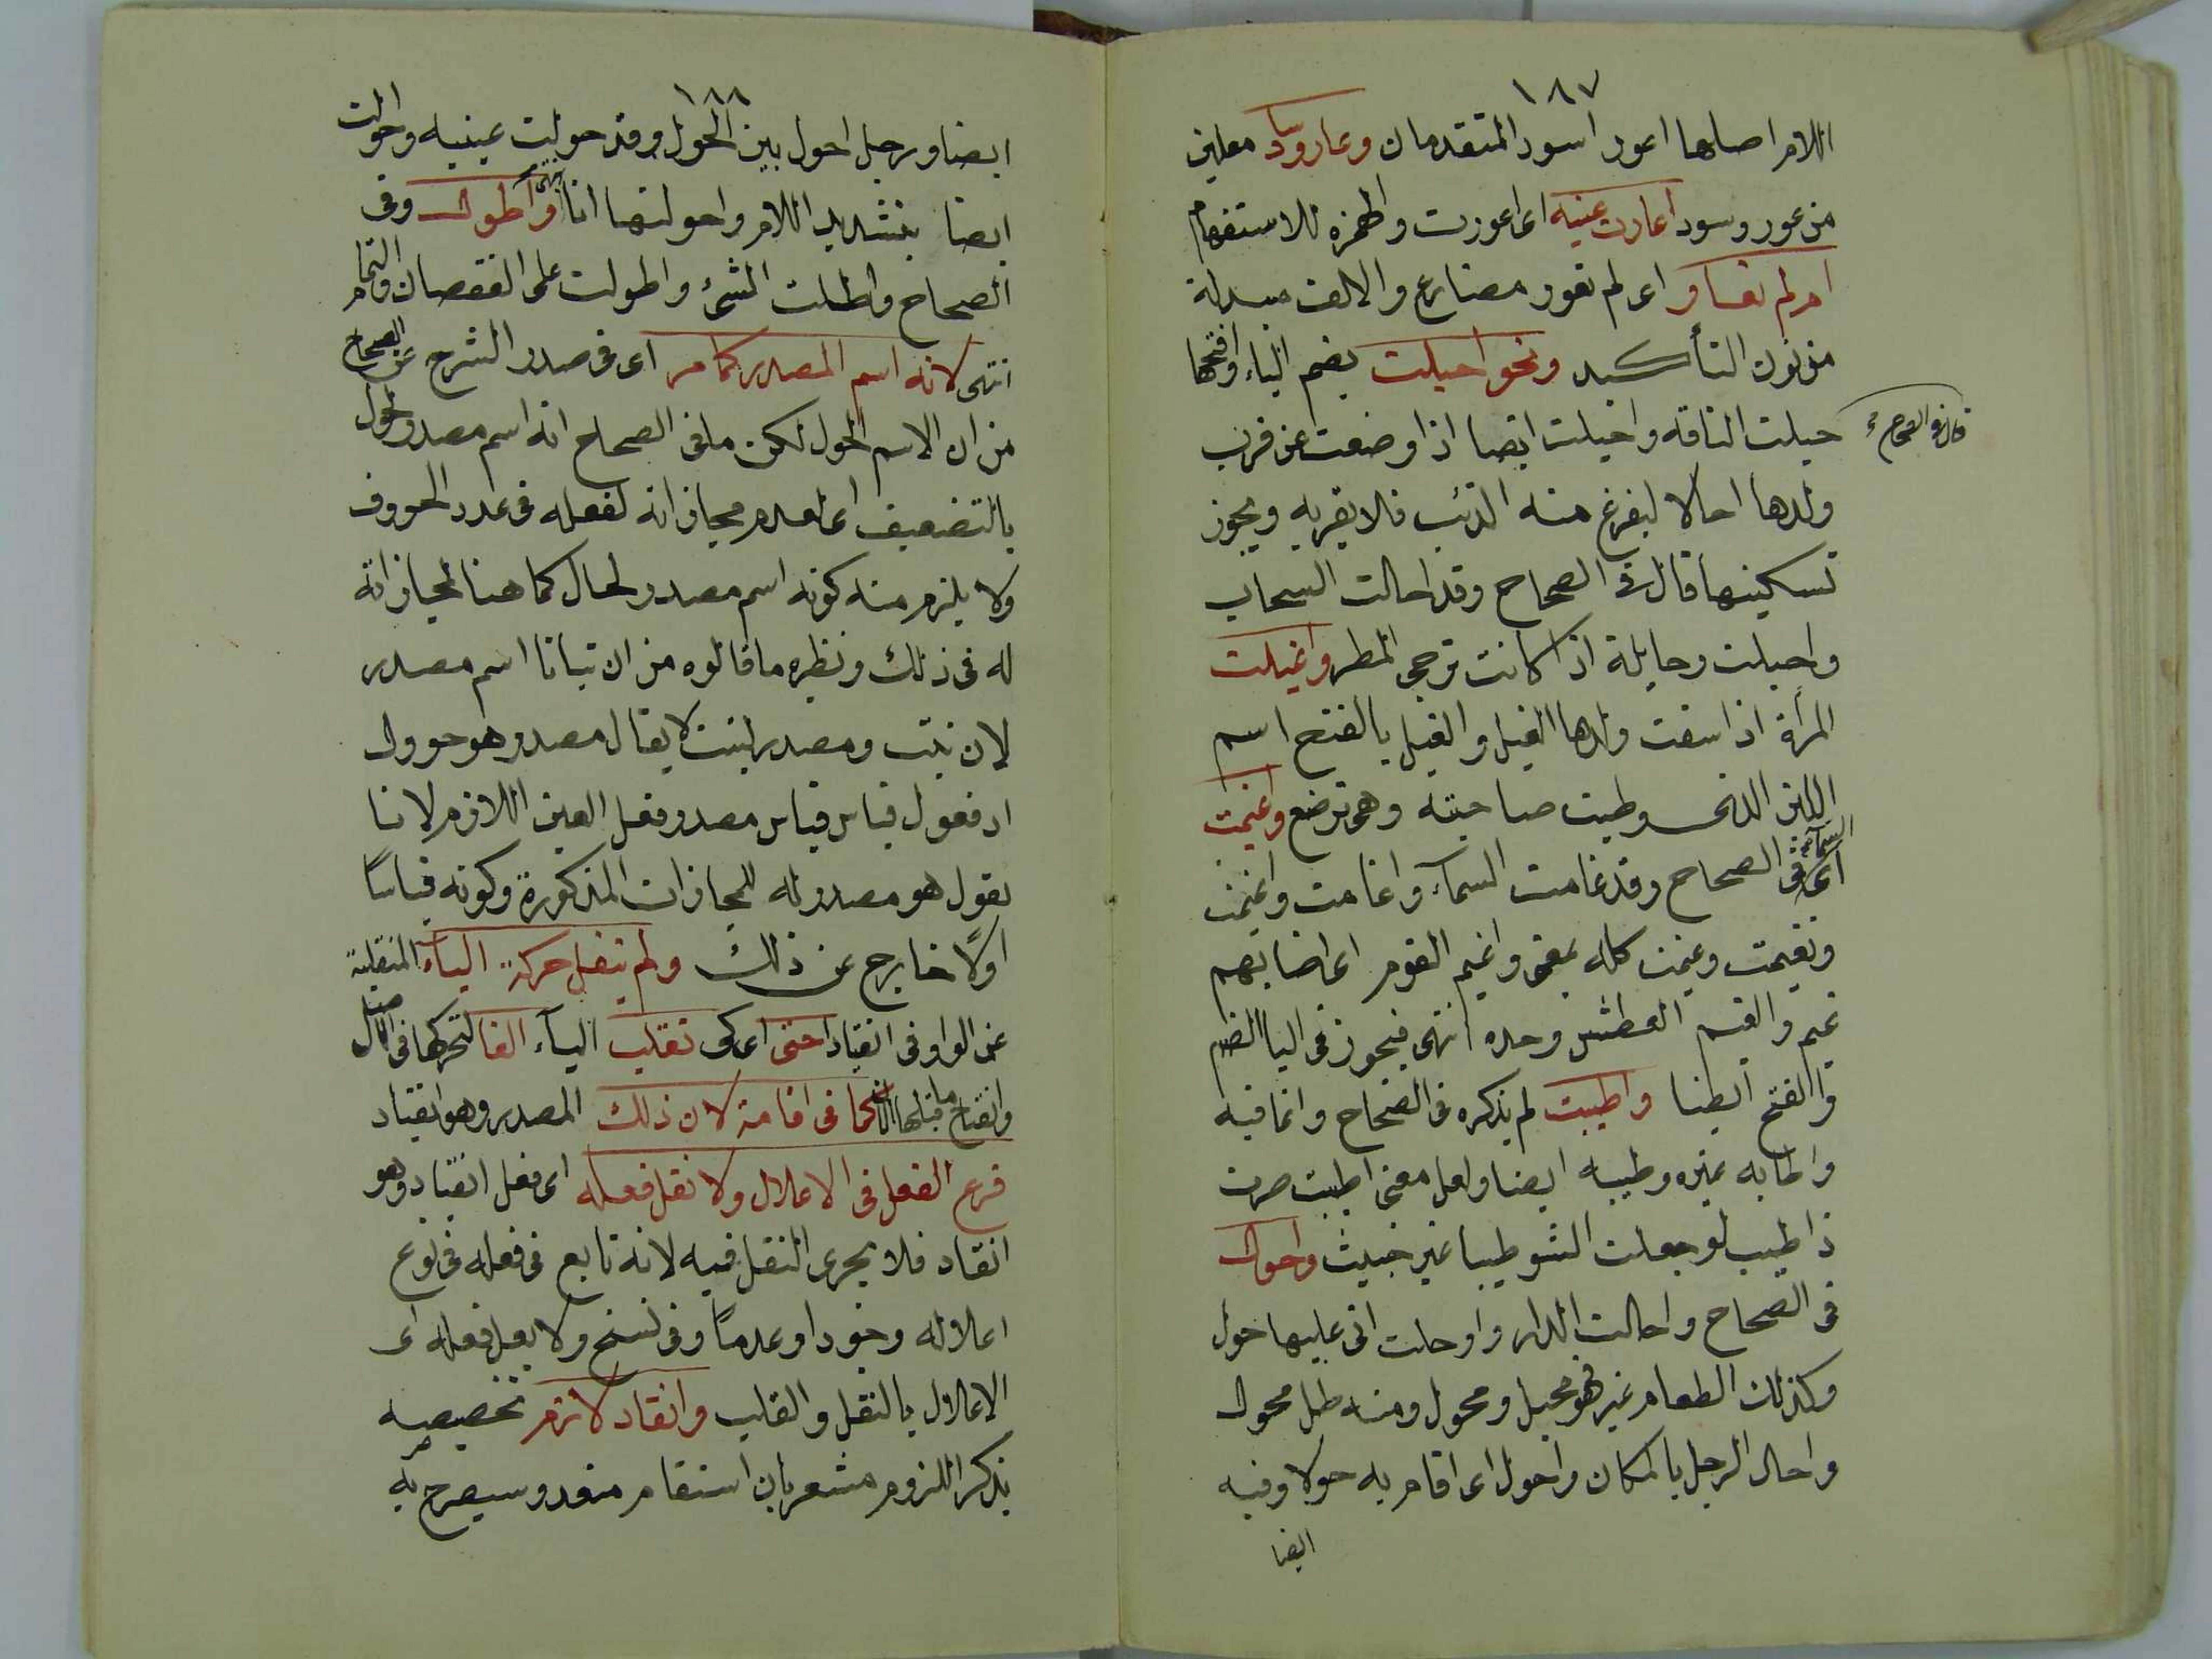 ١٨٧
اللام اصلها اعور اسود المتقدمان وعار وساد معلين
من عور وسود اعارت عينه اى اعورت والهمزه للاستفهام
ام لم تعارا اى لم تعور مضارع والالف مبدلة
من نون التأكيد ونحو احيلت بضم الياء وافتحها
قال فى الصحاح
حيلت الناقه واخيلت ايضا اذا وضعت عن قرب
ولدها احالا ليفزع منه الذئب فلا يقربه ويجوز
تسكينها قال فى الصحاح وقد احالت السحاب
واحيلت وحايلة اذا كانت ترجى المطر واغيلت
المرأة اذا سقت ولدها الغيل والغيل بالفتح اسم
اللبن الذى وطيت صاحبته وهى ترضع واغيمت
السماء
اى فى الصحاح وقد غامت السماء واغامت واغيمت
وتغيمت وغيمت كله بمعنى واغيم القوم اى اصابهم
غيم والغيم العطش وحده انتهى فيجوز فى اليا الضم
والفتح ايضا واطيبت لم يذكره فى الصحاح وانما فيه
واطابه غيره وطيبه ايضا ولعل معنى اطيبت صرت
ذا طيب لو جعلت الشو طيبا غير خبيث واحول
فى الصحاح واحالت الدار واوحلت اتى عليها حول
وكذلك الطعام غيره فهو محيل ومحول ومنه طلل محول
واحال الرجل بالمكان واحول اى اقام به حولا وفيه
ايضا
١٨٨
ايضا ورجل احول بين الحول وقد حولت عينيه واحولت
ايضا بتشديد اللام واحولتها انا انتهى واطول وفى
الصحاح واطلت الشئ واطولت على النقصان والتمام
انتهى لانه اسم المصدر كما مر اى فى صدر الشرح عن الصحاح
من ان الاسم الحول لكن ما فى الصحاح انه اسم مصدر لحول
بالتضعيف اى لعدم مجازاته لفعله فى عدد الحروف
ولا يلزم منه كونه اسم مصدر لحال كما هنا لمجازاته
له فى ذلك ونظيره ما قالوه من ان نباتا اسم مصدر
لان نبت ومصدر لنبت لا يقال مصدر هو حوول
اد فعول قياس قياس مصدر فعل العين اللازم لانا
نقول هو مصدر له لمجازات المذكورة وكونه قياسًا
اولًا خارج عن ذلك ولم ينقل حركة الياء المنقلبة
عن الواو فى انقياد حتى اى كى تقلب الياء الفا لتحركها فى الاصل
وانفتاح ما قبلها الان كما فى اقامة لان ذلك المصدر وهو انقياد
فرع الفعل فى الاعلال ولا نقل فعله اى فعل انقياد وهو
انقاد فلا يجرى النقل فيه لانه تابع فى فعله فى نوع
اعلاله وجودا وعدمًا وفى نسخ ولا يعل فعله اى
الاعلال بالنقل والقلب وانقاد لازم تخصيصه
بذكر اللزوم مشعر بان استقام متعد وسيصرح به